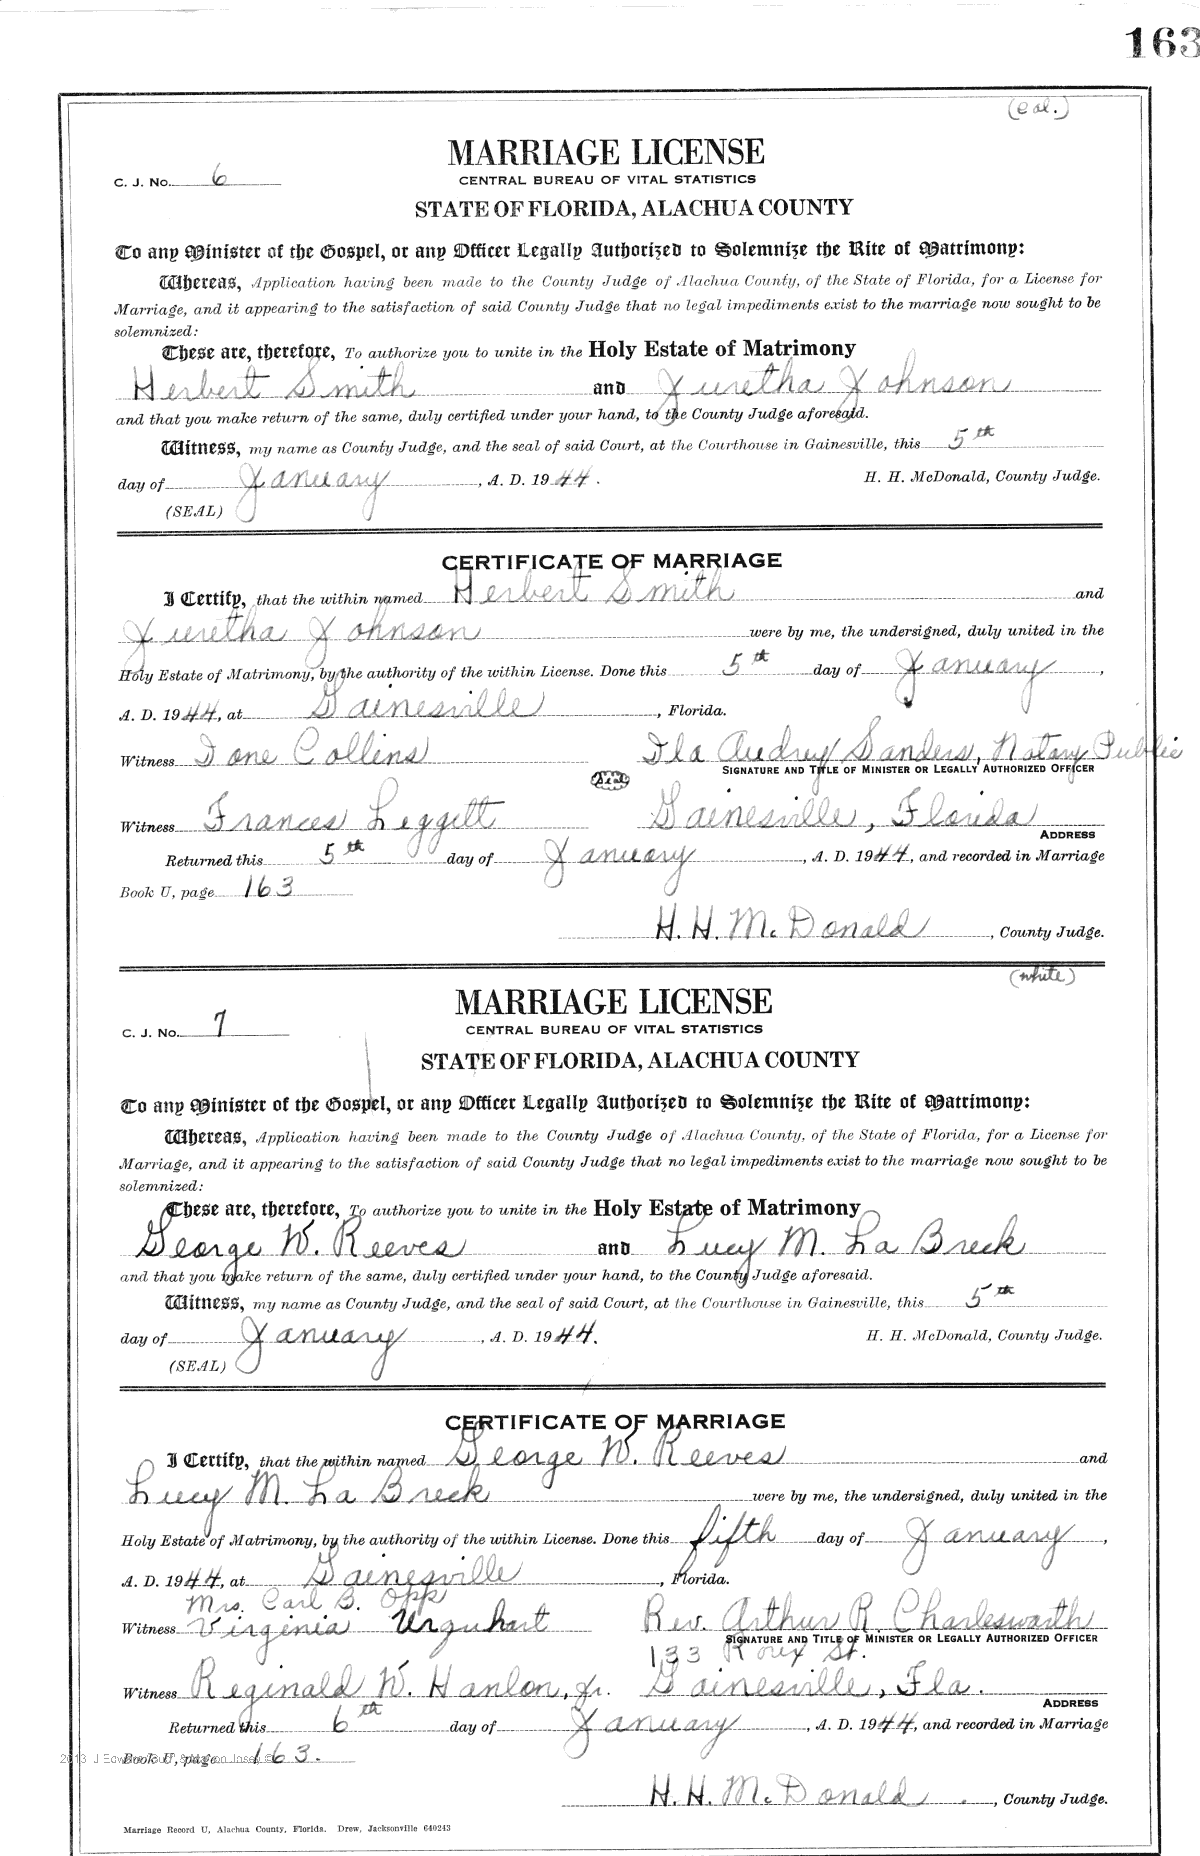 163
(col.)
MARRIAGE LICENSE
C. J. No. 6
CENTRAL BUREAU OF VITAL STATISTICS
STATE OF FLORIDA, ALACHUA COUNTY
To any Minister of the Gospel, or any Officer Legally Authorized to Solemnize the Rite of Matrimony:
Whereas, Application having been made to the County Judge of Alachua County, of the State of Florida, for a License for
Marriage, and it appearing to the satisfaction of said County Judge that no legal impediments exist to the marriage now sought to be
solemnized:
These are, therefore, To authorize you to unite in the Holy Estate of Matrimony
Herbert Smith and Juretha Johnson
and that you make return of the same, duly certified under your hand, to the County Judge aforesaid.
Witness, my name as County Judge, and the seal of said Court, at the Courthouse in Gainesville, this 5th
day of January, A. D. 1944. H. H. McDonald, County Judge.
(SEAL)
CERTIFICATE OF MARRIAGE
I Certify, that the within named Herbert Smith and
Juretha Johnson were by me, the undersigned, duly united in the
Holy Estate of Matrimony, by the authority of the within License. Done this 5th day of January,
A. D. 1944, at Gainesville, Florida.
Witness Ione Collins Ila Audrey Sanders, Notary Public
(Seal) SIGNATURE AND TITLE OF MINISTER OR LEGALLY AUTHORIZED OFFICER
Witness Frances Leggett Gainesville, Florida
ADDRESS
Returned this 5th day of January, A. D. 1944, and recorded in Marriage
Book U, page 163
H. H. McDonald, County Judge.
(white)
MARRIAGE LICENSE
C. J. No. 7
CENTRAL BUREAU OF VITAL STATISTICS
STATE OF FLORIDA, ALACHUA COUNTY
To any Minister of the Gospel, or any Officer Legally Authorized to Solemnize the Rite of Matrimony:
Whereas, Application having been made to the County Judge of Alachua County, of the State of Florida, for a License for
Marriage, and it appearing to the satisfaction of said County Judge that no legal impediments exist to the marriage now sought to be
solemnized:
These are, therefore, To authorize you to unite in the Holy Estate of Matrimony
George W. Reeves and Lucy M. La Breck
and that you make return of the same, duly certified under your hand, to the County Judge aforesaid.
Witness, my name as County Judge, and the seal of said Court, at the Courthouse in Gainesville, this 5th
day of January, A. D. 1944. H. H. McDonald, County Judge.
(SEAL)
CERTIFICATE OF MARRIAGE
I Certify, that the within named George W. Reeves and
Lucy M. La Breck were by me, the undersigned, duly united in the
Holy Estate of Matrimony, by the authority of the within License. Done this fifth day of January,
A. D. 1944, at Gainesville, Florida.
Mrs. Carl B. Opp
Witness Virginia Urquhart Rev. Arthur R. Charlesworth
SIGNATURE AND TITLE OF MINISTER OR LEGALLY AUTHORIZED OFFICER
133 Roux St.
Witness Reginald W. Hanlon, Jr. Gainesville, Fla.
ADDRESS
Returned this 6th day of January, A. D. 1944, and recorded in Marriage
Book U, page 163.
2013 J
H. H. McDonald, County Judge.
Marriage Record U, Alachua County, Florida. Drew, Jacksonville 640243